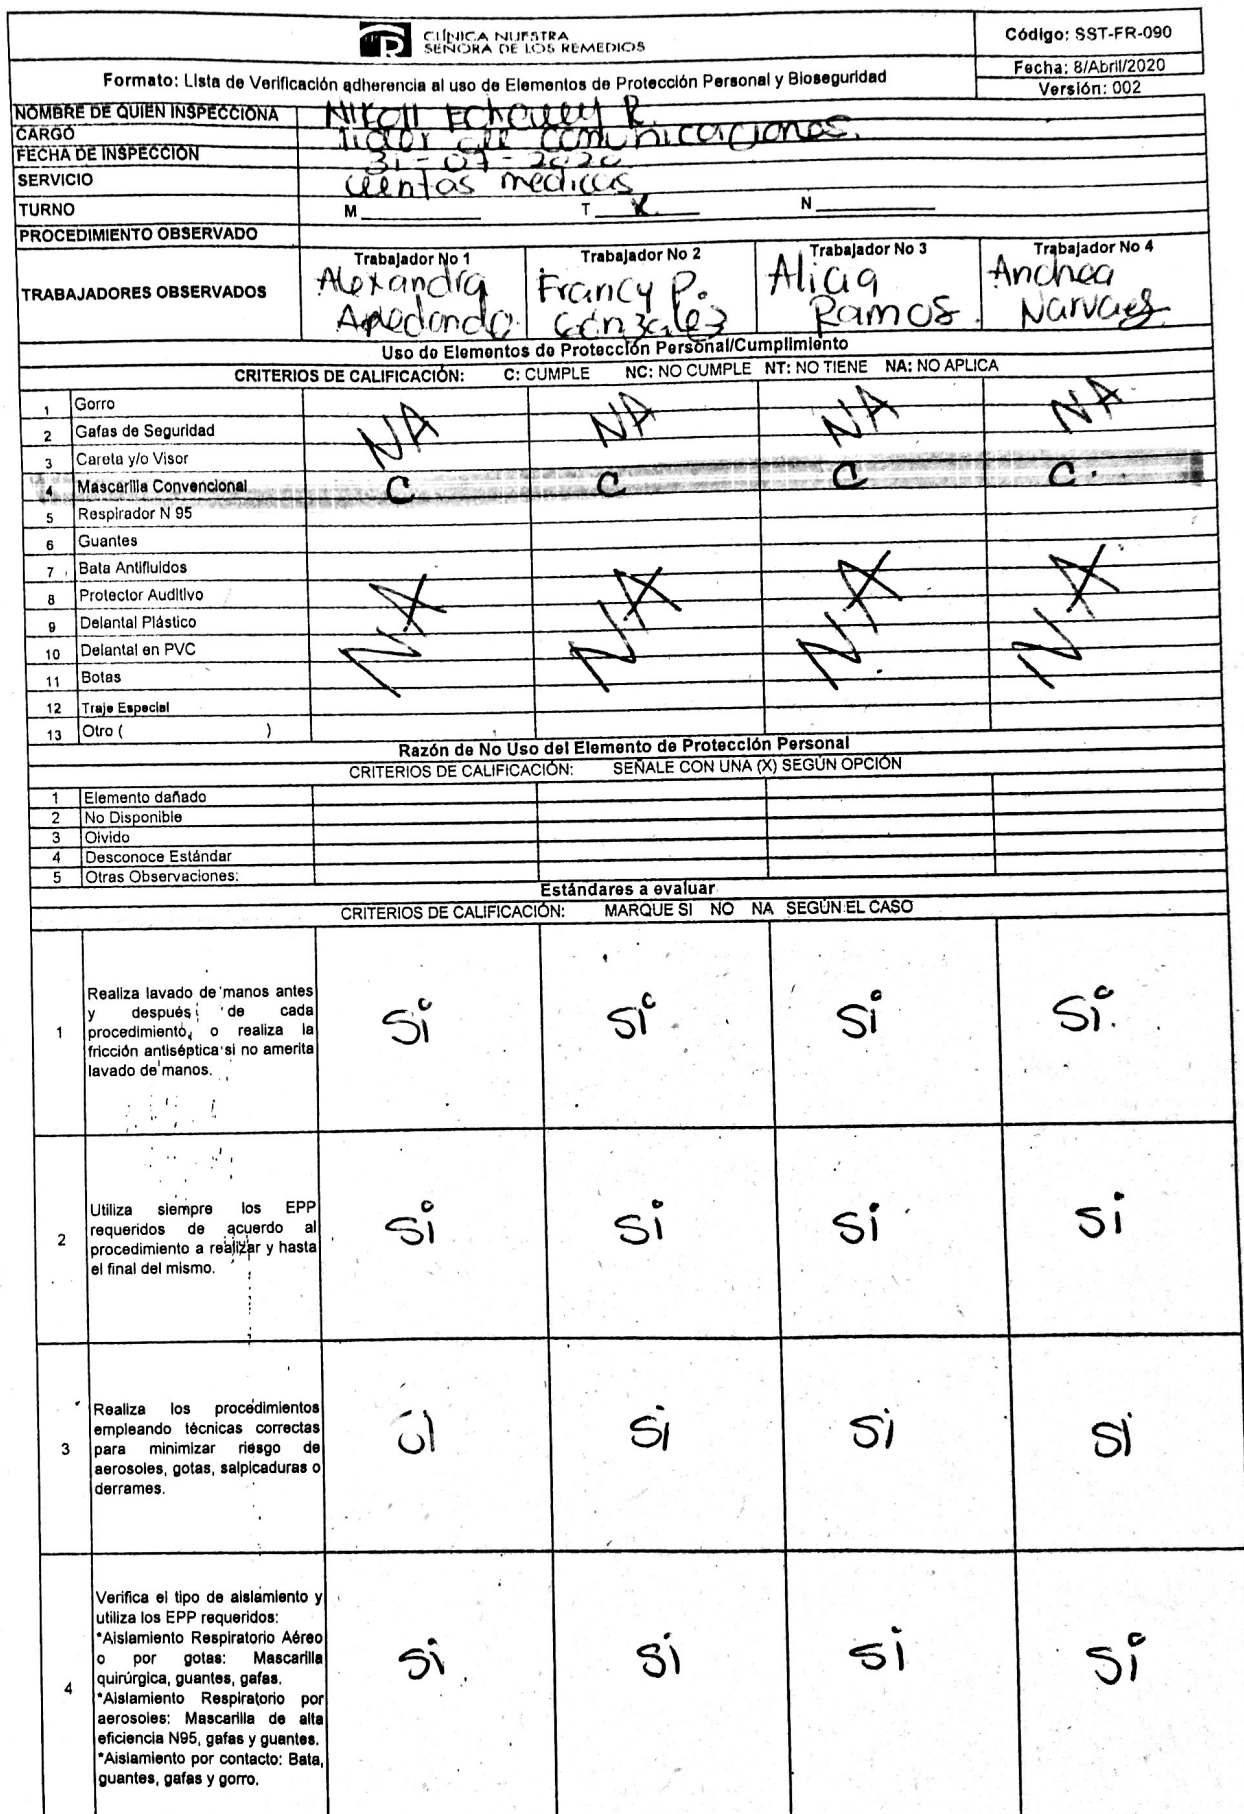 CLÍNICA NUESTRA
SEÑORA DE LOS REMEDIOS
Código: SST-FR-090
Formato: Lista de Verificación adherencia al uso de Elementos de Protección Personal y Bioseguridad
Fecha: 8/Abril/2020
Versión: 002
NOMBRE DE QUIEN INSPECCIONA R.
CARGO lider de comunicaciones.
FECHA DE INSPECCIÓN 31-07-2020
SERVICIO cuentas medicas
TURNO M T X N
PROCEDIMIENTO OBSERVADO
TRABAJADORES OBSERVADOS
Trabajador No 1 Trabajador No 2 Trabajador No 3 Trabajador No 4
Alexandra Francy P. Alicia Andrea
González Ramos. Narvaez
Uso de Elementos de Protección Personal/Cumplimiento
CRITERIOS DE CALIFICACIÓN: C: CUMPLE NC: NO CUMPLE NT: NO TIENE NA: NO APLICA
1 Gorro
2 Gafas de Seguridad NA NA NA NA
3 Careta y/o Visor
4 Mascarilla Convencional C C C C.
5 Respirador N 95
6 Guantes
7 Bata Antifluidos
8 Protector Auditivo
9 Delantal Plástico NA NA NA NA
10 Delantal en PVC
11 Botas
12 Traje Especial
13 Otro ( )
Razón de No Uso del Elemento de Protección Personal
CRITERIOS DE CALIFICACIÓN: SEÑALE CON UNA (X) SEGÚN OPCIÓN
1 Elemento dañado
2 No Disponible
3 Olvido
4 Desconoce Estándar
5 Otras Observaciones:
Estándares a evaluar
CRITERIOS DE CALIFICACIÓN: MARQUE SI NO NA SEGÚN EL CASO
1
Realiza lavado de manos antes
y después de cada
procedimiento, o realiza la
fricción antiséptica si no amerita
lavado de manos.
Si Si Si Si.
2
Utiliza siempre los EPP
requeridos de acuerdo al
procedimiento a realizar y hasta
el final del mismo.
Si Si Si Si
3
Realiza los procedimientos
empleando técnicas correctas
para minimizar riesgo de
aerosoles, gotas, salpicaduras o
derrames.
Si Si Si Si
4
Verifica el tipo de aislamiento y
utiliza los EPP requeridos:
*Aislamiento Respiratorio Aéreo
o por gotas: Mascarilla
quirúrgica, guantes, gafas.
*Aislamiento Respiratorio por
aerosoles: Mascarilla de alta
eficiencia N95, gafas y guantes.
*Aislamiento por contacto: Bata,
guantes, gafas y gorro.
Si Si Si Si